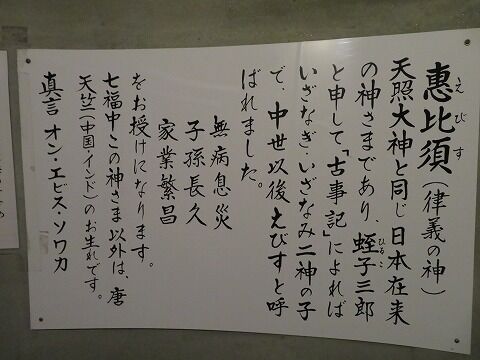 えびす
惠比須(律義の神)
天照大神と同じ日本在来
の神さまであり、蛭子三郎
ひるこ
と申して「古事記」によれば
いざなぎ・いざなみ二神の子
で、中世以後えびすと呼
ばれました。
無病息災
子孫長久
家業繁昌
をお授けになります。
七福中この神さま以外は、唐
天竺(中国・インド)のお生れです。
真言 オン・エビス・ソワカ